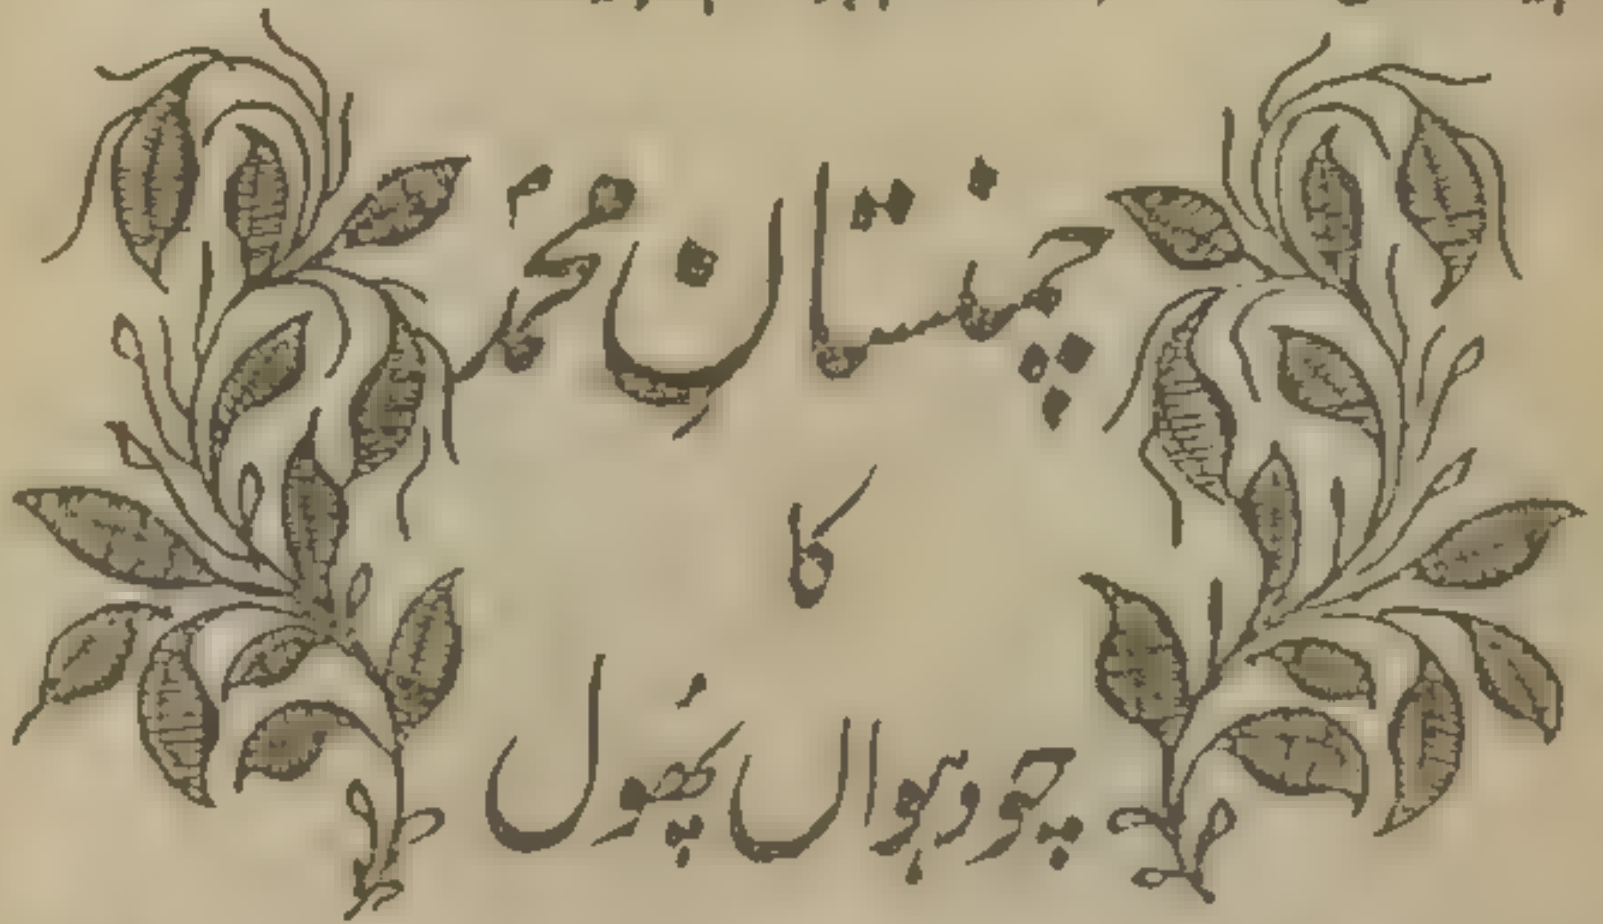 چمنستانِ محمدؐ
کا
چودہواں پُھول